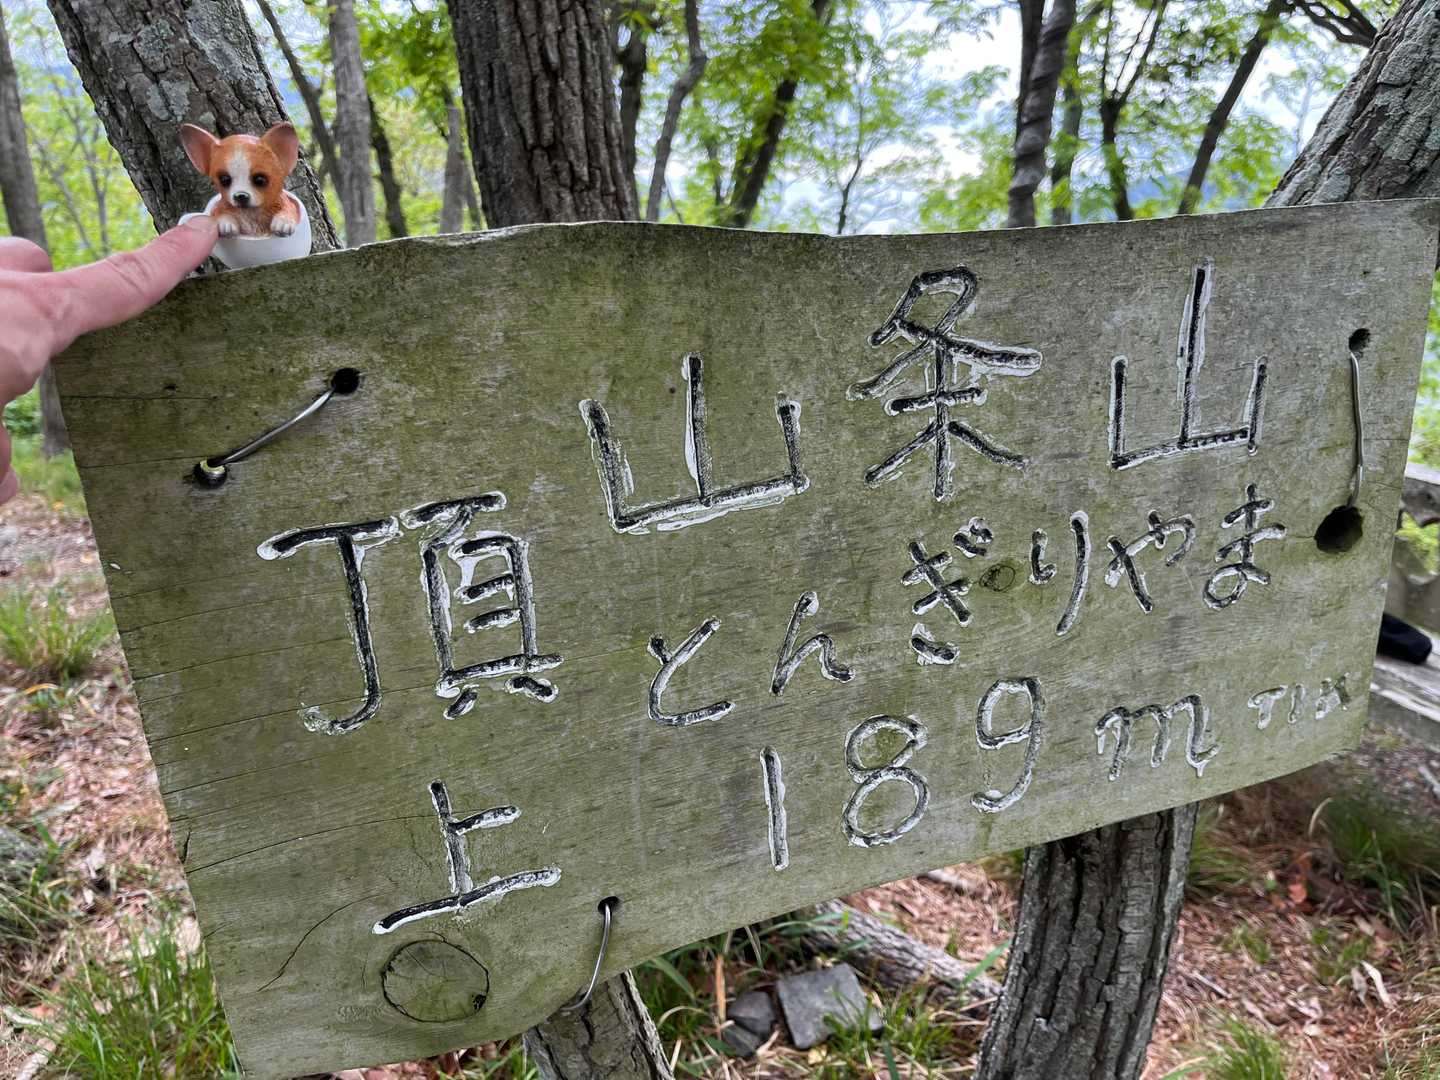 山条山
とんぎりやま
189m
頂上